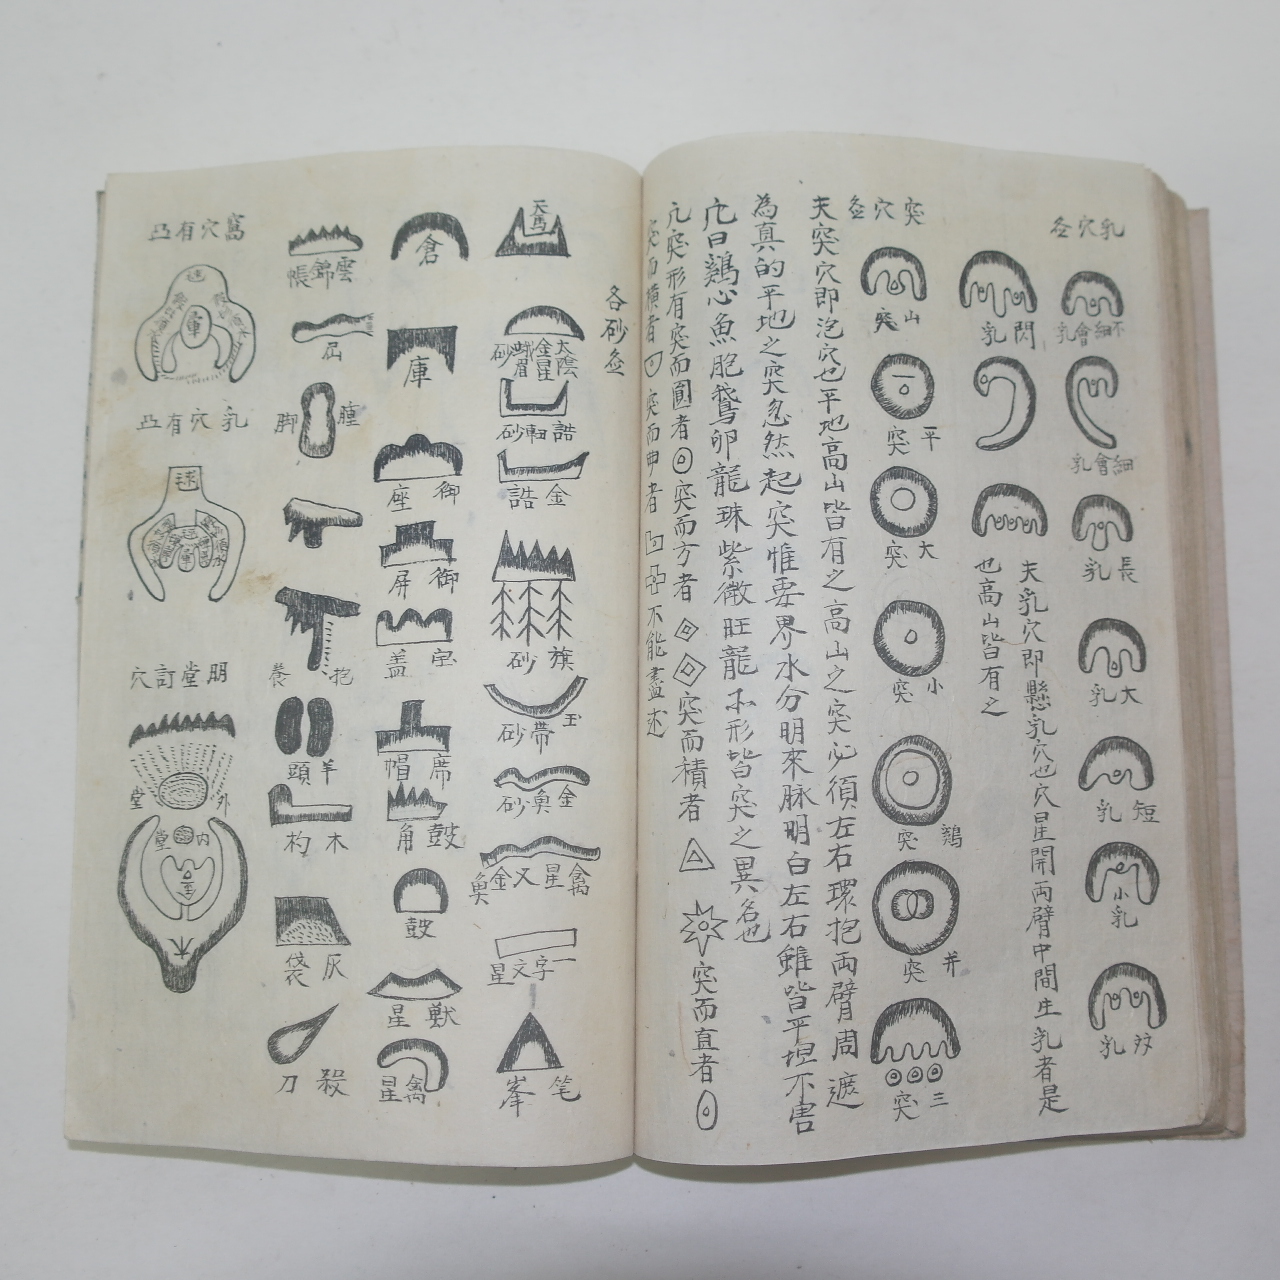 乳穴圖
不細會乳
細會乳
長乳
大乳
短乳
小乳
双乳
閃乳
夫乳穴即懸乳穴也穴星開両臂中間生乳者是
也高山皆有之
突穴圖
山突
平突
大突
小突
鷄突
并突
三突
夫突穴即泡穴也平地高山皆有之高山之突必須左右環抱両臂周遮
為真的平地之突忽然起突惟要界水分明來脉明白左右雖皆平坦不害
穴曰鷄心魚胞鵞卵龍珠紫微旺龍不形皆突之異名也
穴突形有突而圓者突而方者突而積者突而直者
突而橫者突而曲者不能盡述
各砂圖
天馬
太陰金星蛾眉砂
誥軸砂
金誥
旗砂
玉帶砂
金魚砂
禽星又金魚
一字文星
笔峯
倉
庫
御座
御屏
宝盖
席帽
鼓角
鼓
獸星
禽星
雲錦帳
屈
腫脚
抱養
羊頭
木杓
灰袋
殺刀
窩穴有凸
乳穴有凸
球
明堂訂穴
外堂
内堂